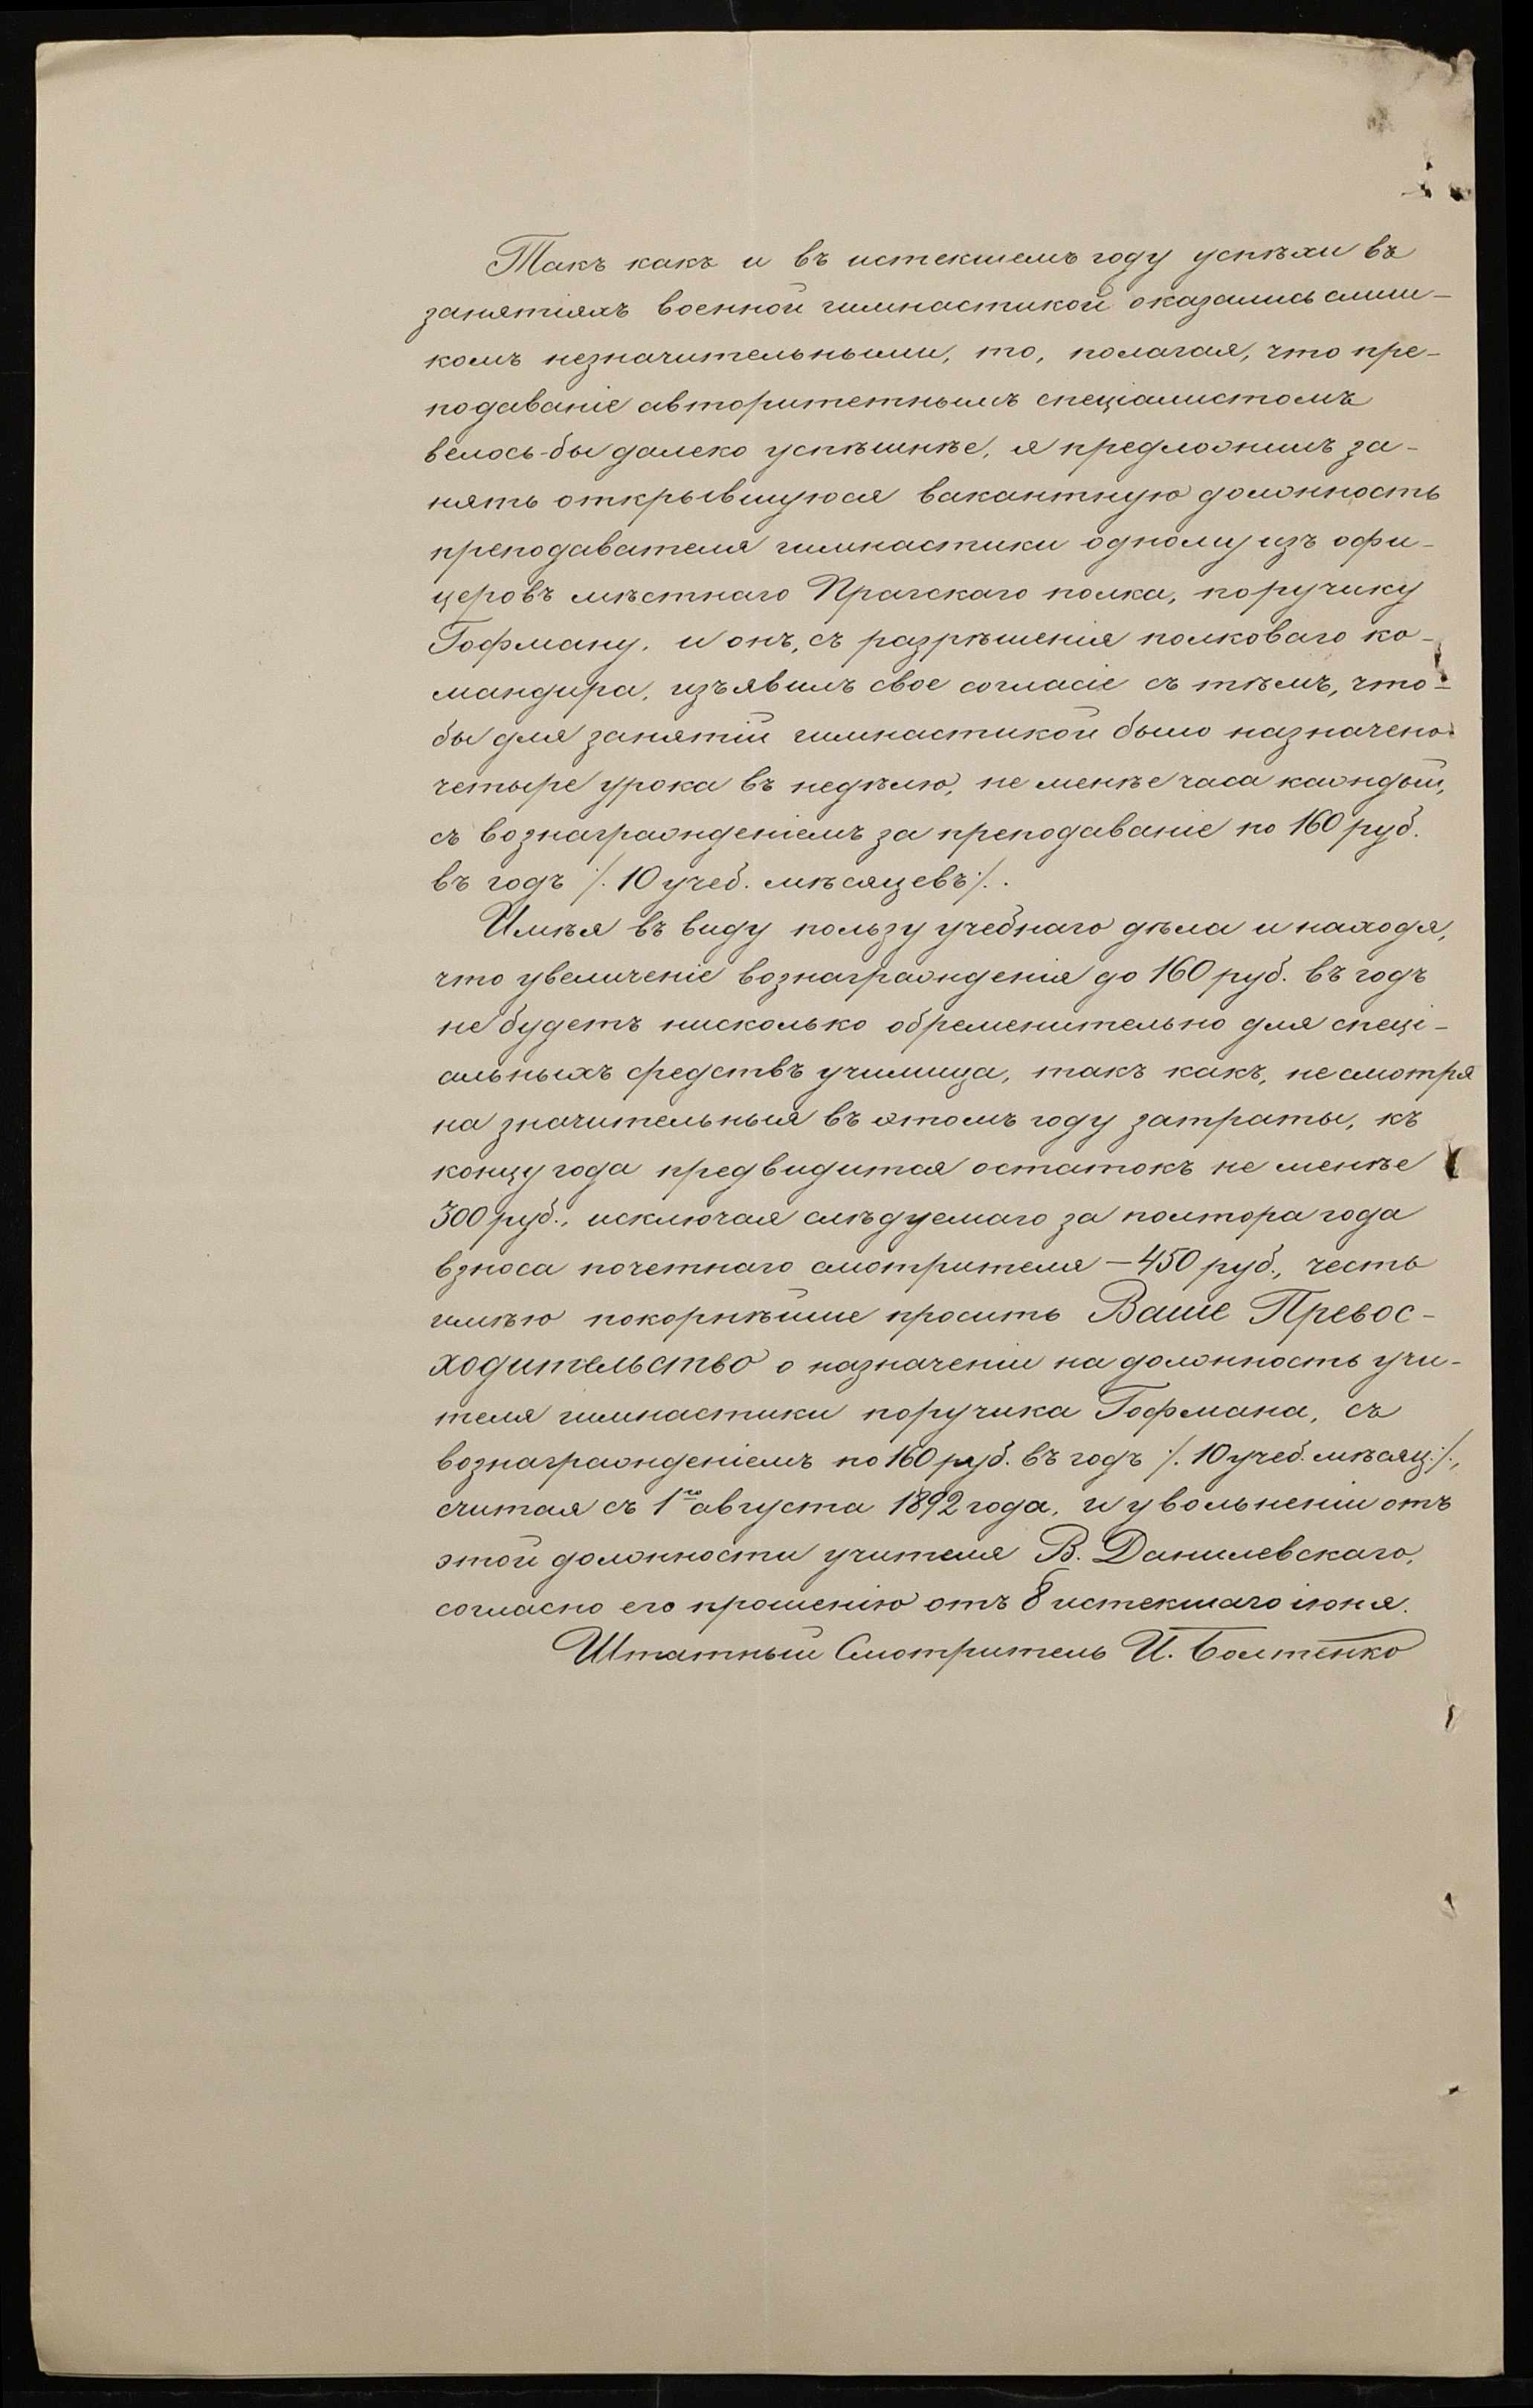 Такъ какъ и въ истекшемъ году успѣхи въ
занятіяхъ военной гимнастикой оказались слиш-
комъ незначительными, то, полагая, что пре-
подаваніе авторитетнымъ спеціалистомъ
велось-бы далеко успѣшнѣе, я предложилъ за-
нять открывшуюся вакантную должность
преподавателя гимнастики одному изъ офи-
церовъ мѣстнаго Прагскаго полка, поручику
Гофману, и онъ, съ разрѣшенія полковаго ко-
мандира, изъявилъ свое согласіе съ тѣмъ, что-
бы для занятій гимнастикой было назначено
четыре урока въ недѣлю, не менѣе часа каждый,
съ вознагражденіемъ за преподаваніе по 160 руб.
въ годъ /. 10 учеб. мѣсяцевъ /. .
Имѣя въ виду пользу учебнаго дѣла и находя,
что увеличеніе вознагражденія до 160 руб. въ годъ
не будетъ нисколько обременительно для спеці-
альныхъ средствъ училища, такъ какъ, не смотря
на значительныя въ этомъ году затраты, къ
концу года предвидится остатокъ не менѣе
300 руб., исключая слѣдуемаго за полтора года
взноса почетнаго смотрителя – 450 руб., честь
имѣю покорнѣйше просить Ваше Превос-
ходительство о назначеніи на должность учи-
теля гимнастики поручика Гофмана, съ
вознагражденіемъ по 160 руб. въ годъ /. 10 учеб. мѣсяц. /.,
считая съ 1го августа 1892 года, и увольненіи отъ
этой должности учителя В. Данилевскаго,
согласно его прошенію отъ 8 истекшаго іюня.
Штатный Смотритель И. Болтенко